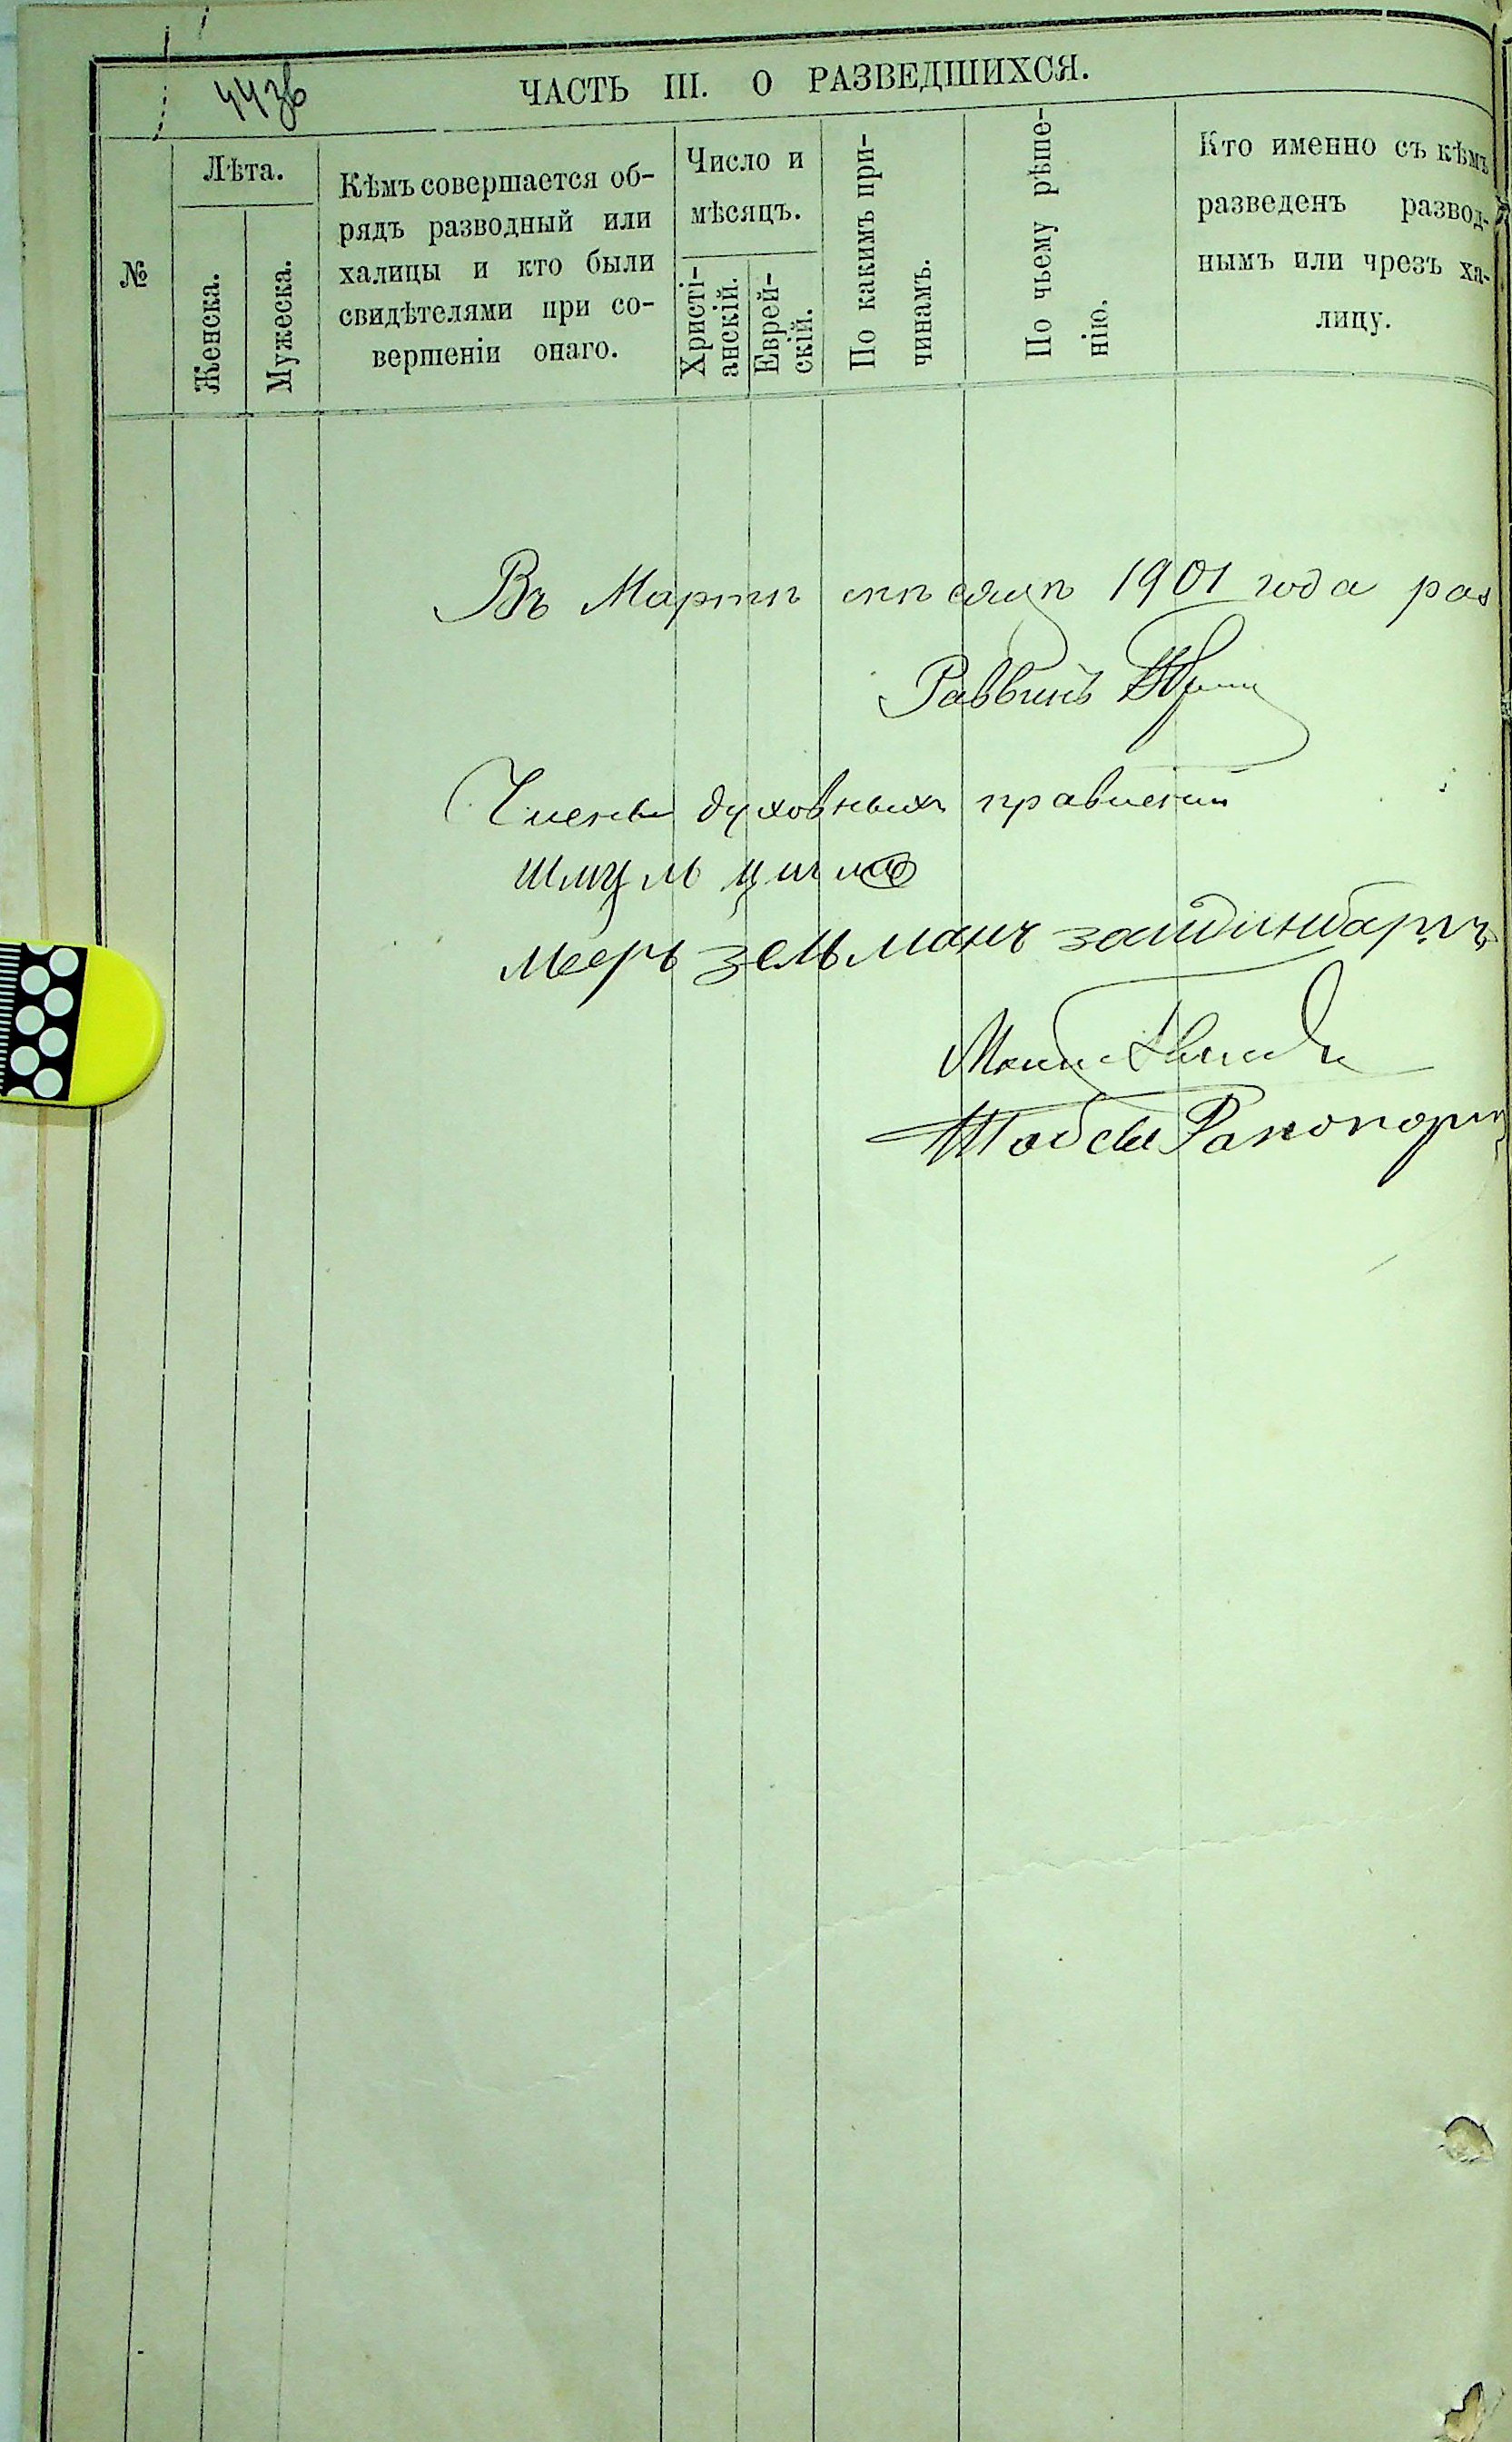 443б
ЧАСТЬ III. О РАЗВЕДШИХСЯ.
№
Лѣта.
Женска.
Мужеска.
Кѣмъ совершается об-
рядъ разводный или
халицы и кто были
свидѣтелями при со-
вершеніи онаго.
Число и
мѣсяцъ.
Христі-
анскій.
Еврей-
скій.
По какимъ при-
чинамъ.
По чьему рѣше-
нію.
Кто именно съ кѣмъ
разведенъ развод-
нымъ или чрезъ ха-
лицу.
Въ Мартѣ мѣсяцѣ 1901 года раз
Раввинъ
Члены духовныхъ правленій
Шмуль
Мееръ Зельманъ
Рапопортъ